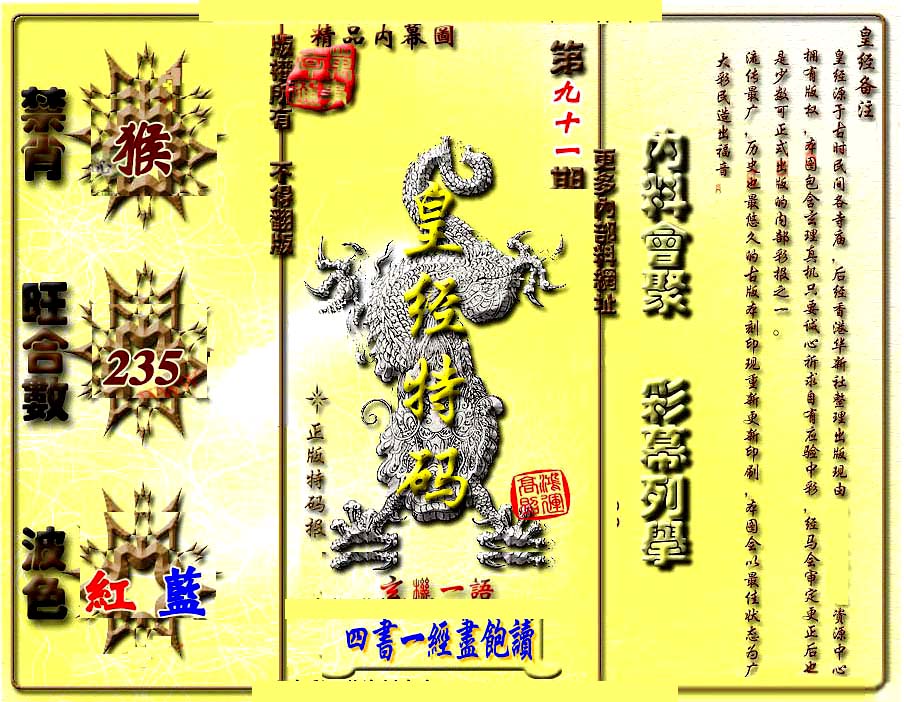 禁肖
猴
旺合數
235
波色
紅 藍
精品内幕圖
版權所有 不得翻版
第九十一期
更多内部料網址
皇经特码
正版特码报
鴻運高照
玄機一語
四書一經盡飽讀
内料會聚
彩幕列舉
皇经备注
皇经源于古时民间各寺庙，后经香港华新社整理出版现由 资源中心
拥有版权，本图包含玄理真机只要诚心祈求自有应验中彩，经马会审定更正后也
是少数可正式出版的内部彩报之一。
流传最广，历史也最悠久的古版本刻印现重新更新印刷，本图会以最佳状态为广
大彩民造出福音